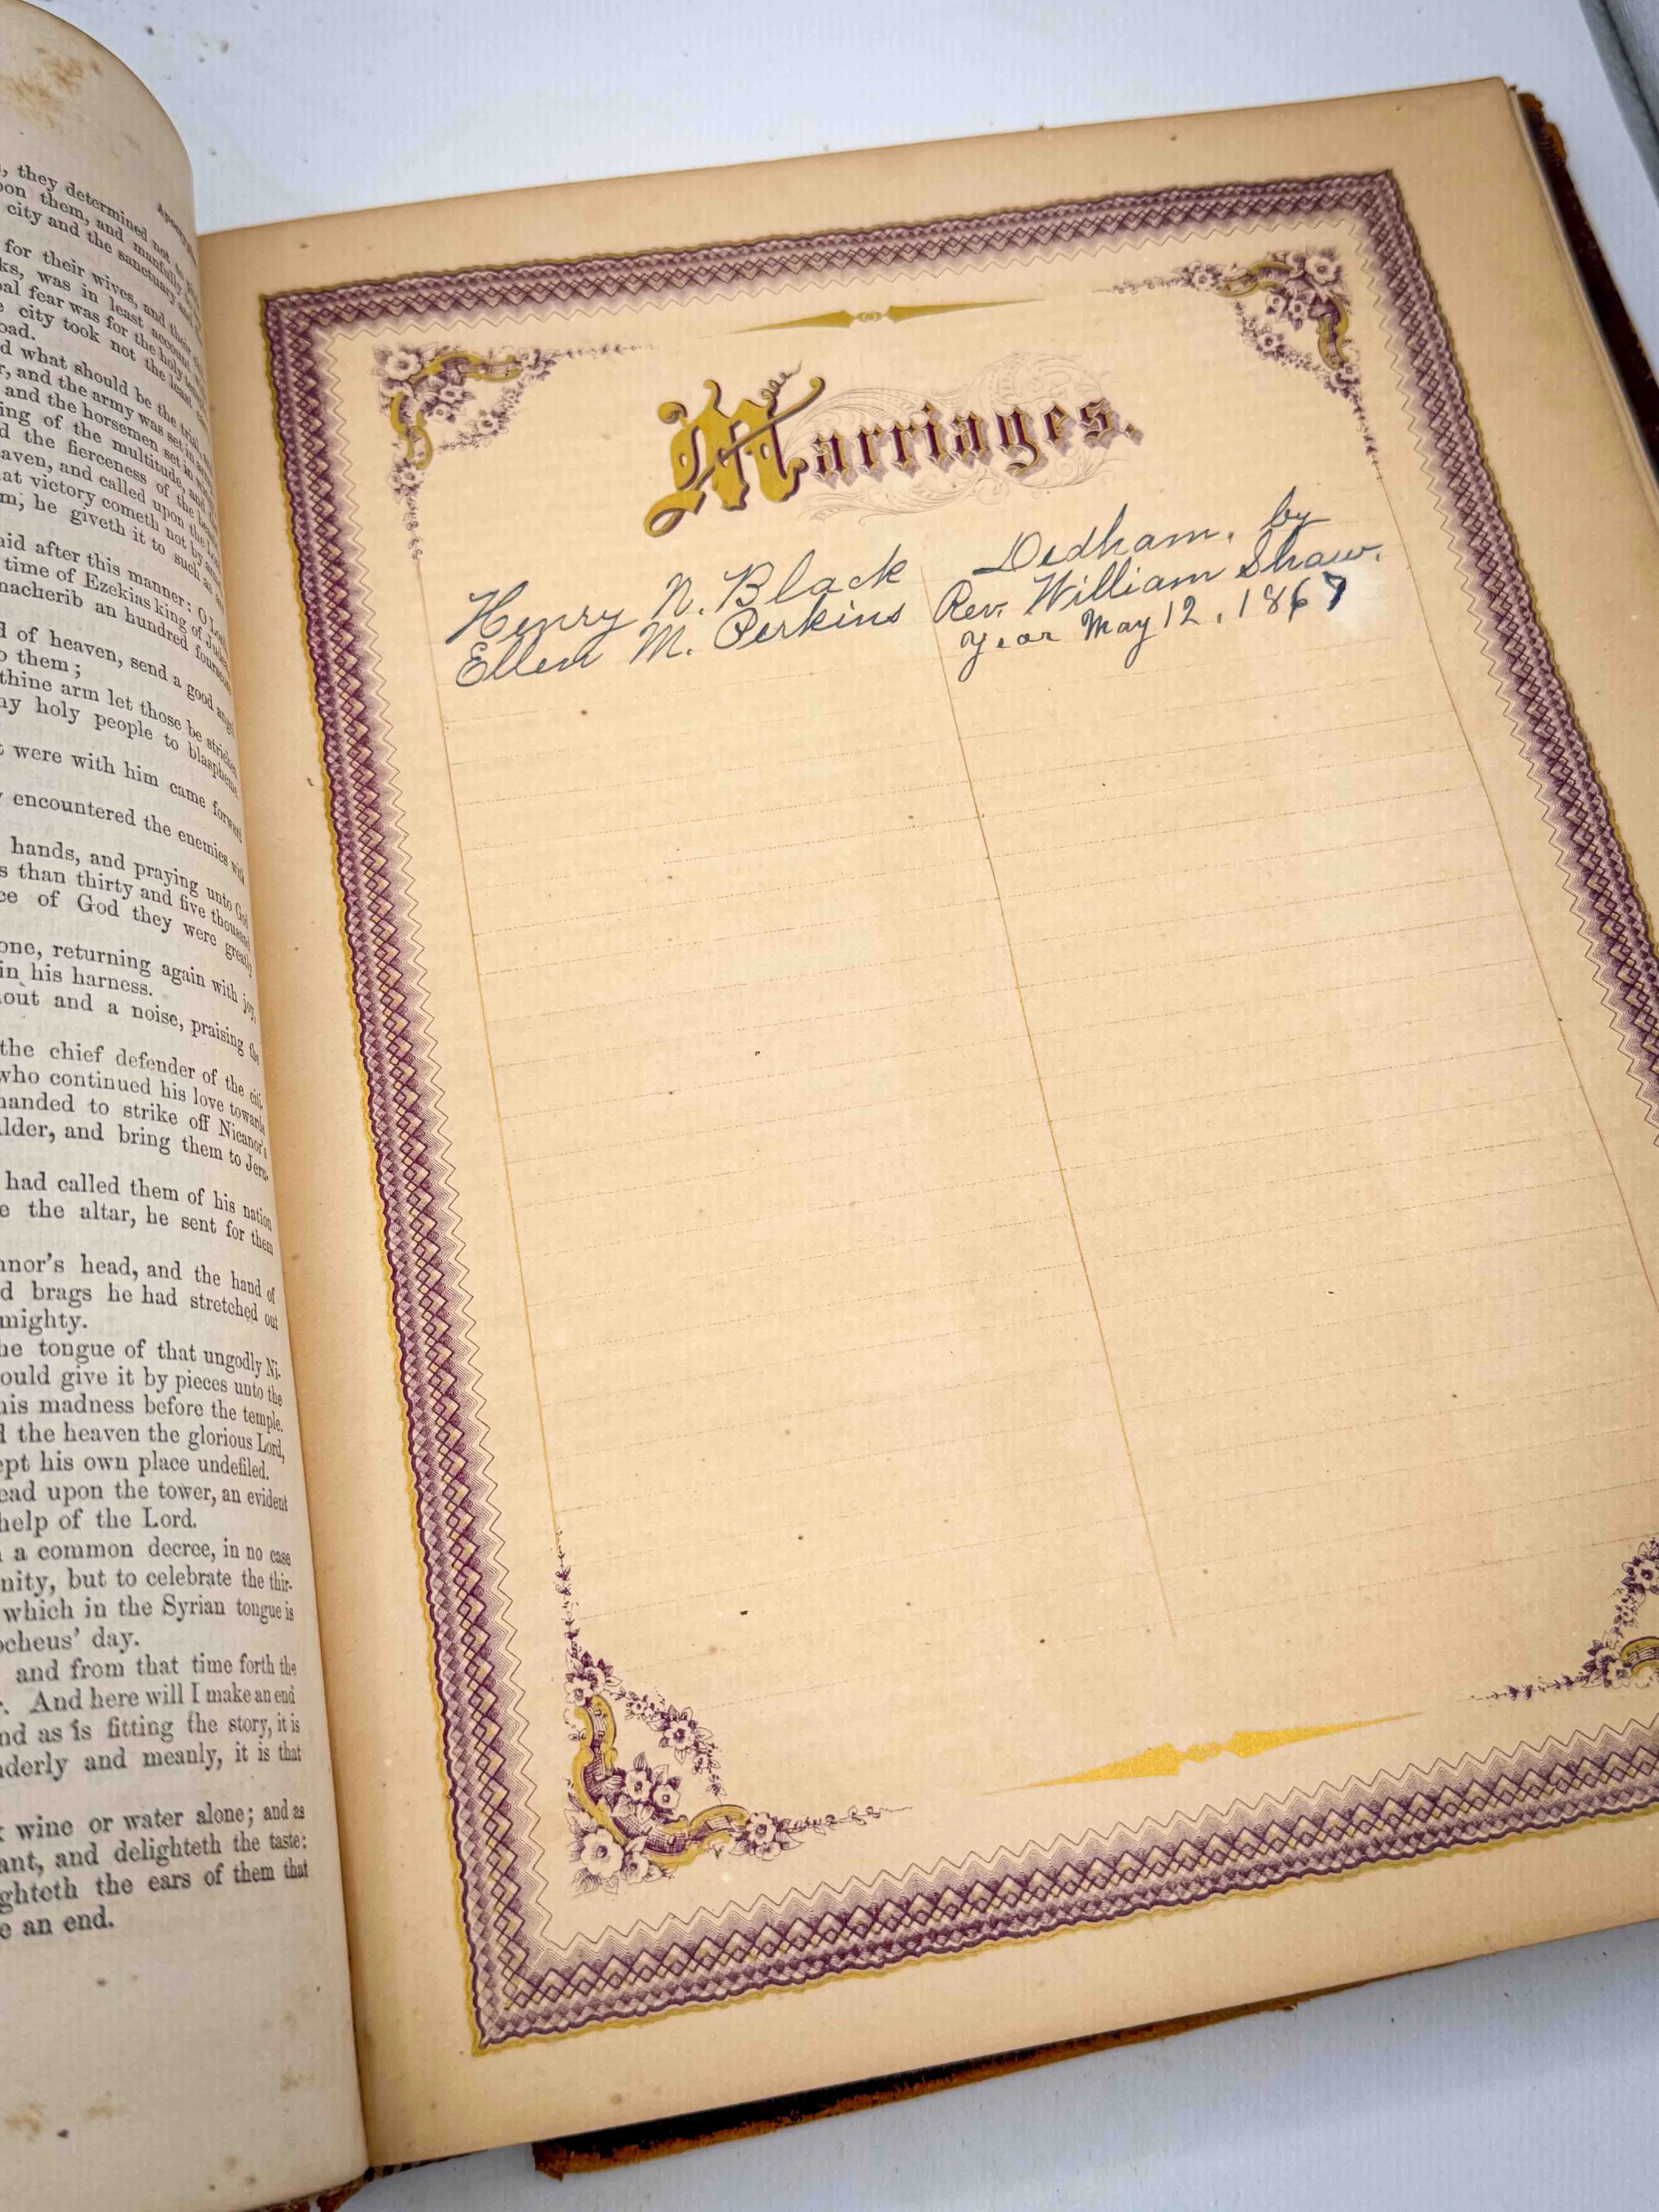 they determined not to
them, and manfully
city and the sanctuary and
for their wives, and their
was in least account
fear was for the holy
city took not the least
what should be the trial,
and the army was set in
and the horsemen set in
of the multitude, and
the fierceness of the
and called upon the
victory cometh not by
he giveth it to such as
after this manner: O
time of Ezekias king of
an hundred
of heaven, send a good
them;
thine arm let those be stricken
holy people to blaspheme.
were with him came forward
encountered the enemies with
hands, and praying unto God
than thirty and five thousand
of God they were greatly
returning again with joy,
in his harness.
and a noise, praising the
the chief defender of the
who continued his love towards
to strike off Nicanor's
and bring them to Jeru-
had called them of his nation
the altar, he sent for them
head, and the hand of
brags he had stretched out
tongue of that ungodly Ni-
give it by pieces unto the
his madness before the temple.
the heaven the glorious Lord,
his own place undefiled.
upon the tower, an evident
help of the Lord.
a common decree, in no case
but to celebrate the thir-
which in the Syrian tongue is
day.
and from that time forth the
And here will I make an end
as is fitting the story, it is
and meanly, it is that
wine or water alone; and as
and delighteth the taste:
the ears of them that
an end.
Marriages.
Henry N. Black Dedham, by
Ellen M. Perkins Rev. William Shaw.
Year May 12, 1867